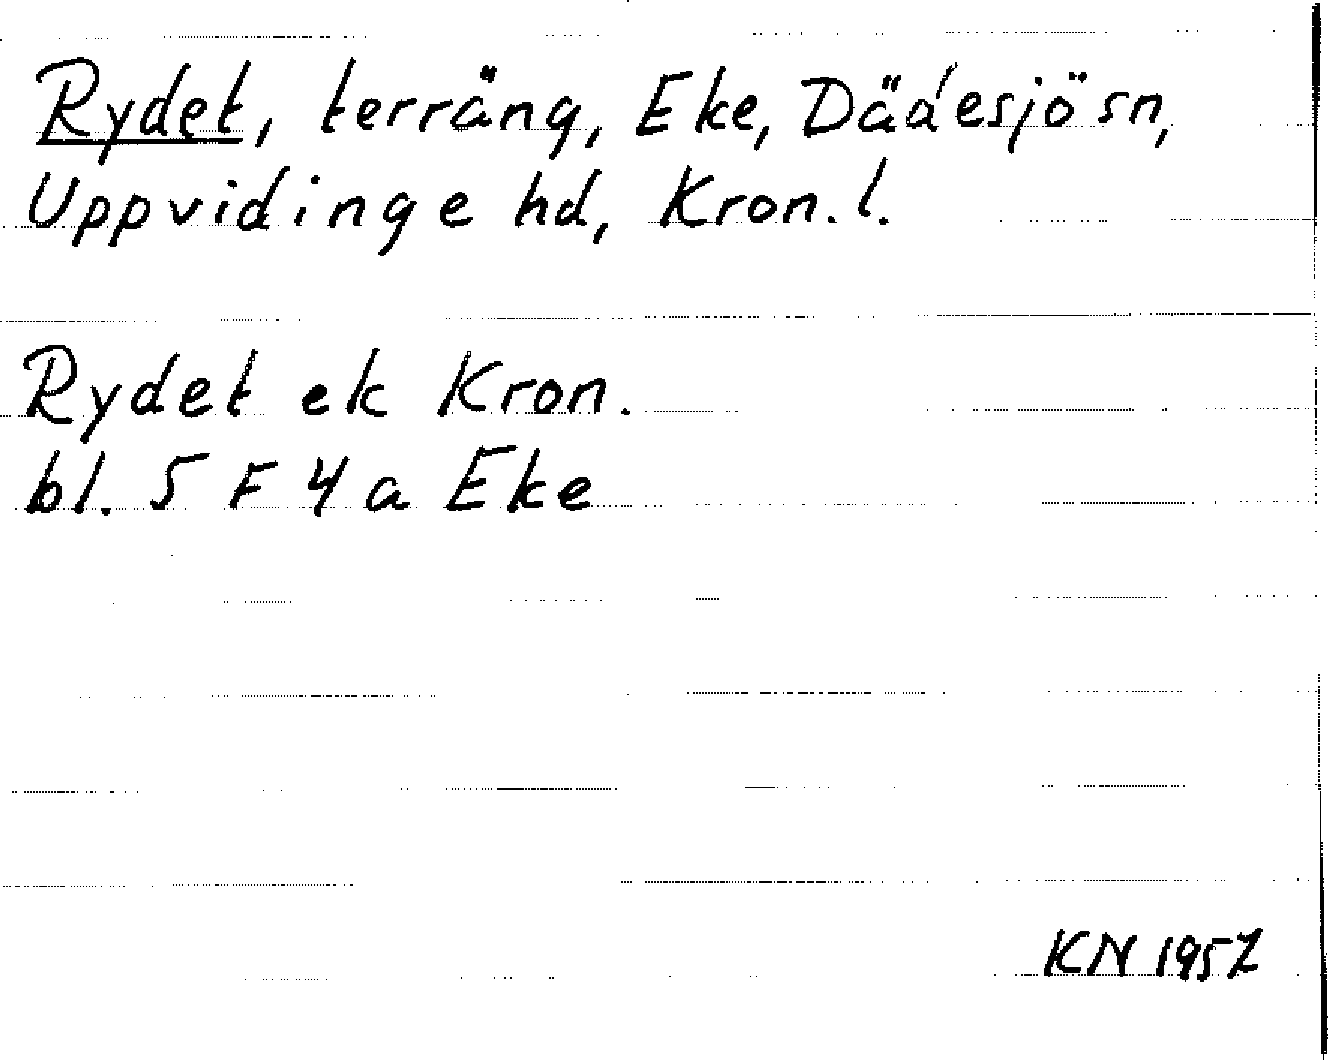 Rydet, terräng, Eke, Dädesjösn,
Uppvidinge hd, Kron. l.
Rydet ek Kron.
bl. 5 F 4 a Eke
KN 1957